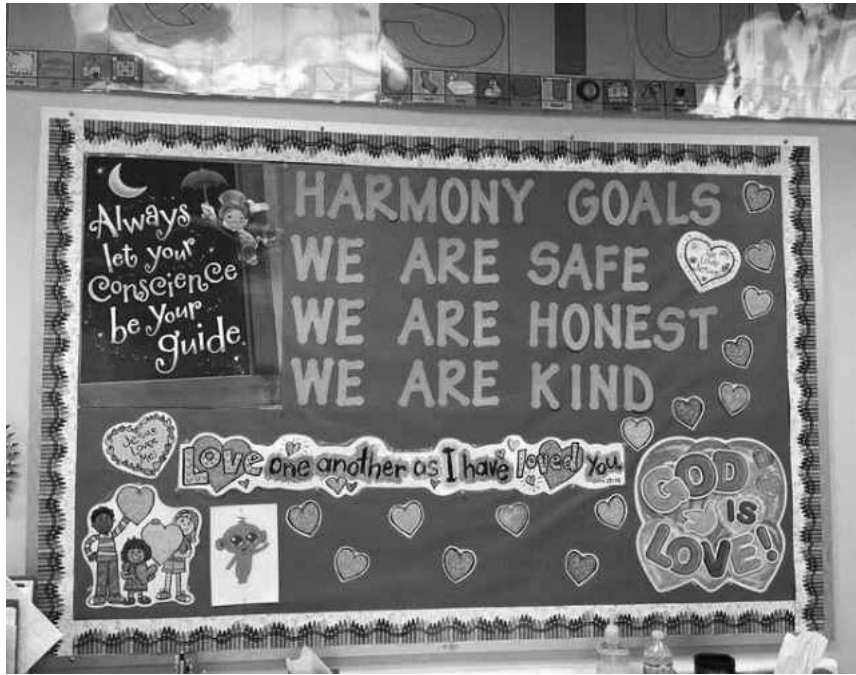 Always
let your
Conscience
be your
guide.
HARMONY GOALS
WE ARE SAFE
WE ARE HONEST
WE ARE KIND
Jesus
Loves
Me!
Love one another as I have loved you.
GOD
IS
LOVE!